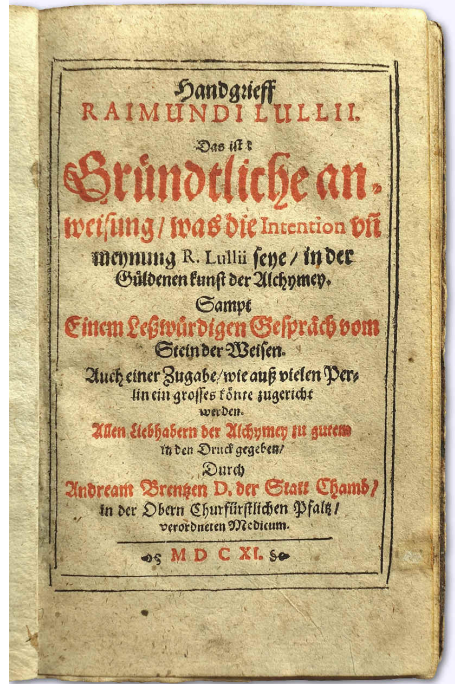 Handgrieff
RAIMUNDI LULLII.
Das ist:
Gründtliche an-
weisung / was die Intention vñ
meynung R. Lullii seye / in der
Güldenen kunst der Alchymey.
Sampt
Einem Leßwürdigen Gespräch vom
Stein der Weisen.
Auch einer Zugabe / wie auß vielen Per-
lin ein grosses könte zugericht
werden.
Allen Liebhabern der Alchymey zu gutem
in den Druck gegeben /
Durch
Andream Brentzen D. der Statt Chamb /
in der Obern Churfürstlichen Pfaltz /
verordneten Medicum.
M D C XI.